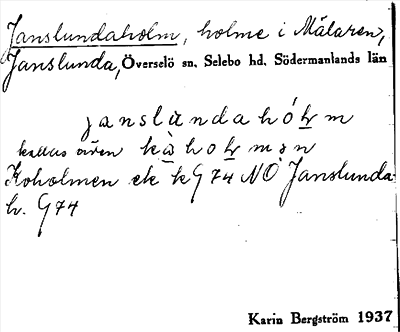 Janslundaholm, holme i Mälaren,
Janslunda, Överselö sn, Selebo hd, Södermanlands län
janslùndahólm
kallas även kàholmən
Koholmen ek kG74 NO Janslunda-
h. G74
Karin Bergström 1937